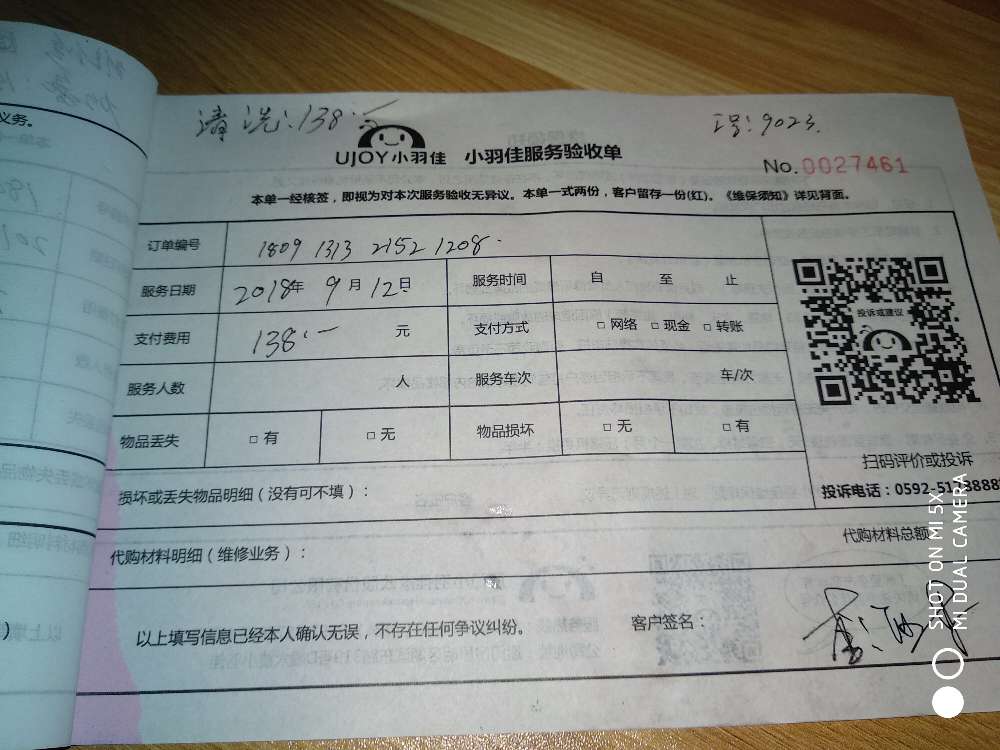 清洗:138元
工号:9023.
UJOY小羽佳 小羽佳服务验收单
No.0027461
本单一经核签,即视为对本次服务验收无异议。本单一式两份,客户留存一份(红)。《维保须知》详见背面。
订单编号 1809 1313 2152 1208.
服务日期 2018年 9月12日 服务时间 自 至 止
支付费用 138.一 元 支付方式 □ 网络 □ 现金 □ 转账
投诉或建议
服务人数 人 服务车次 车/次
物品丢失 □ 有 □ 无 物品损坏 □ 无 □ 有
扫码评价或投诉
损坏或丢失物品明细(没有可不填):
代购材料明细(维修业务):
代购材料总额
以上填写信息已经本人确认无误,不存在任何争议纠纷。 客户签名:
SHOT ON MI 5X
MI DUAL CAMERA